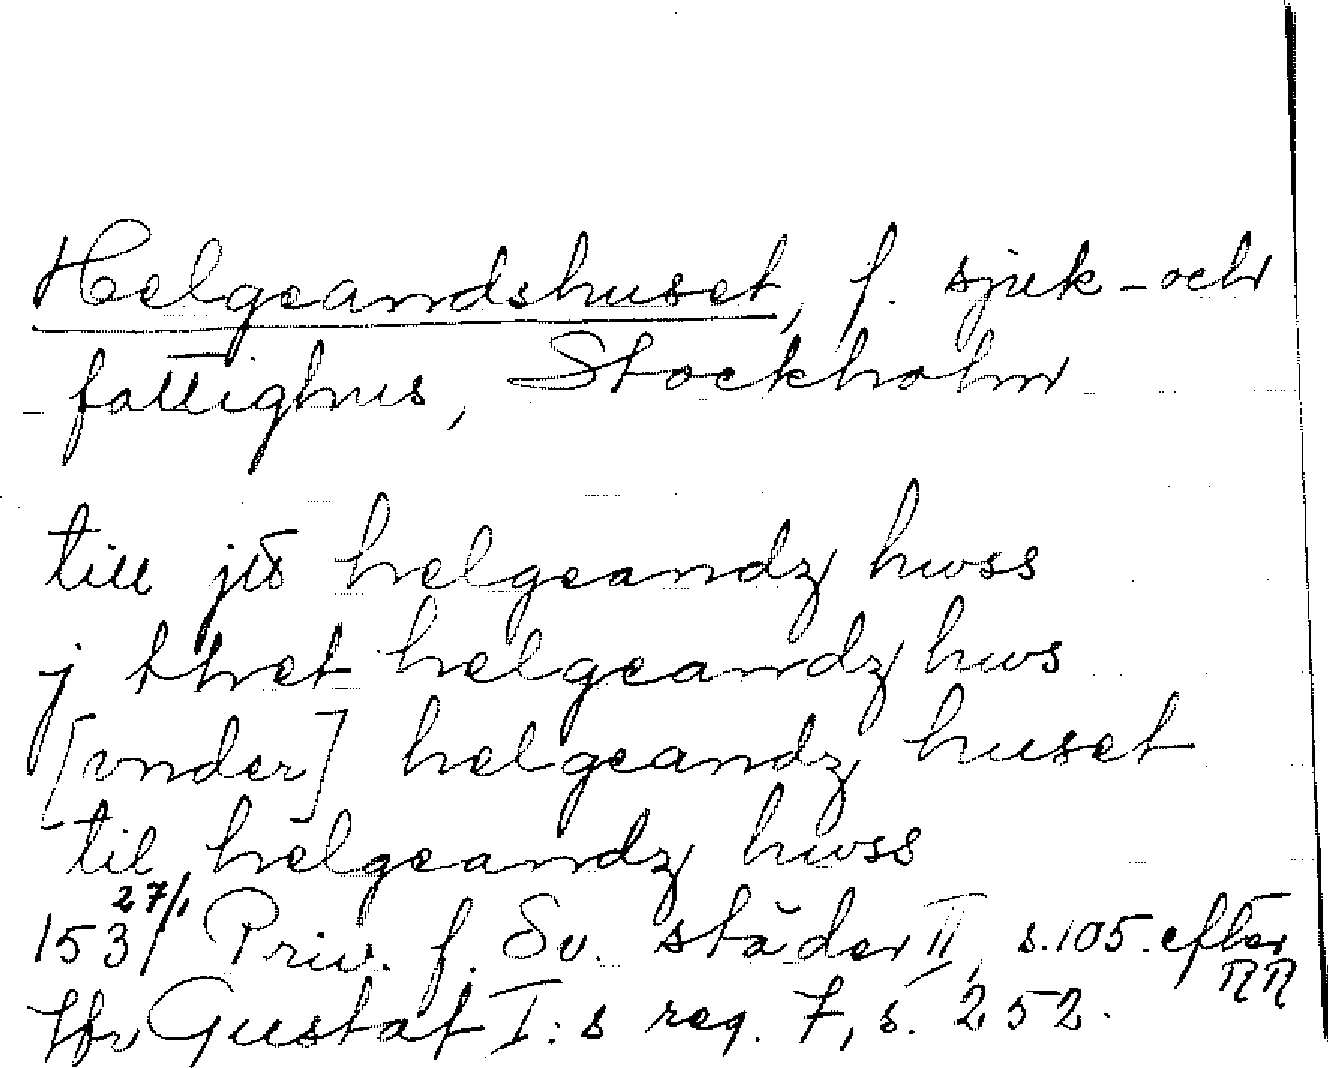 Helgeandshuset, f. sjuk- och
fattighus, Stockholm
till jtt helgeandz hwss
j thet helgeandz hws
[vnder] helgeandz huset
til helgeandz hwss
1531 27/1 Priv. f. Sv. städer II, s. 105. efter RR
Jfr Gustaf I:s reg. 7, s. 252.